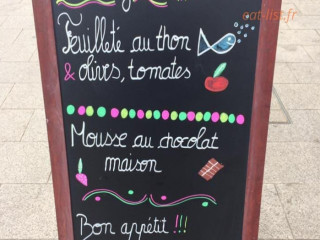 eat-list.fr
Feuilleté au thon
& olives, tomates
Mousse au chocolat
maison
Bon appétit !!!